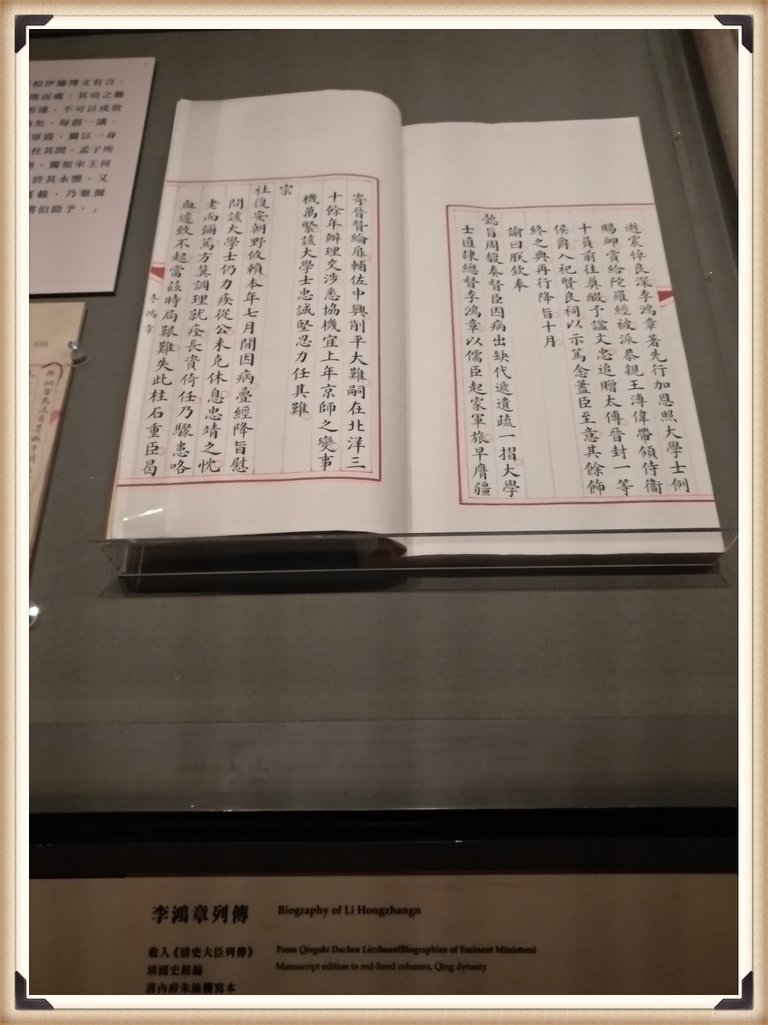 逝震悼良深李鴻章著先行加恩照大學士例
賜卹賞給陀羅經被派恭親王溥偉帶領侍衞
十員前往奠醊予諡文忠追贈太傅晉封一等
侯爵入祀賢良祠以示篤念藎臣至意其餘飾
終之典再行降旨十月
諭曰朕欽奉
懿旨周馥奏督臣因病出缺代遞遺疏一摺大學
士直隸總督李鴻章以儒臣起家軍旅早膺疆
寄晉贊綸扉輔佐中興削平大難嗣在北洋三
十餘年辦理交涉悉協機宜上年京師之變事
機萬緊該大學士忠誠堅忍力任其難
宗
社復安朝野攸賴本年七月間因病疊經降旨慰
問該大學士仍力疾從公未克休息忠靖之忱
老而彌篤方冀調理就痊長資倚任乃驟患咯
血遽致不起當茲時局艱難失此柱石重臣曷
李鴻章
相伊藤博文有言，
而處，其功之難
，不可以成敗
矣，每創一議，
眾毀，獨以一身
柱其間，孟子所
，獨如宋王何
終其永懷，又
載，乃棄爾
將伯助予。」
李鴻章列傳
Biography of Li Hongzhangn
收入《清史大臣列傳》
From Qingshi Dachen Liezhuan(Biographies of Eminent Ministers)
清國史館編
Manuscript edition in red-lined columns, Qing dynasty
清內府朱絲欄寫本